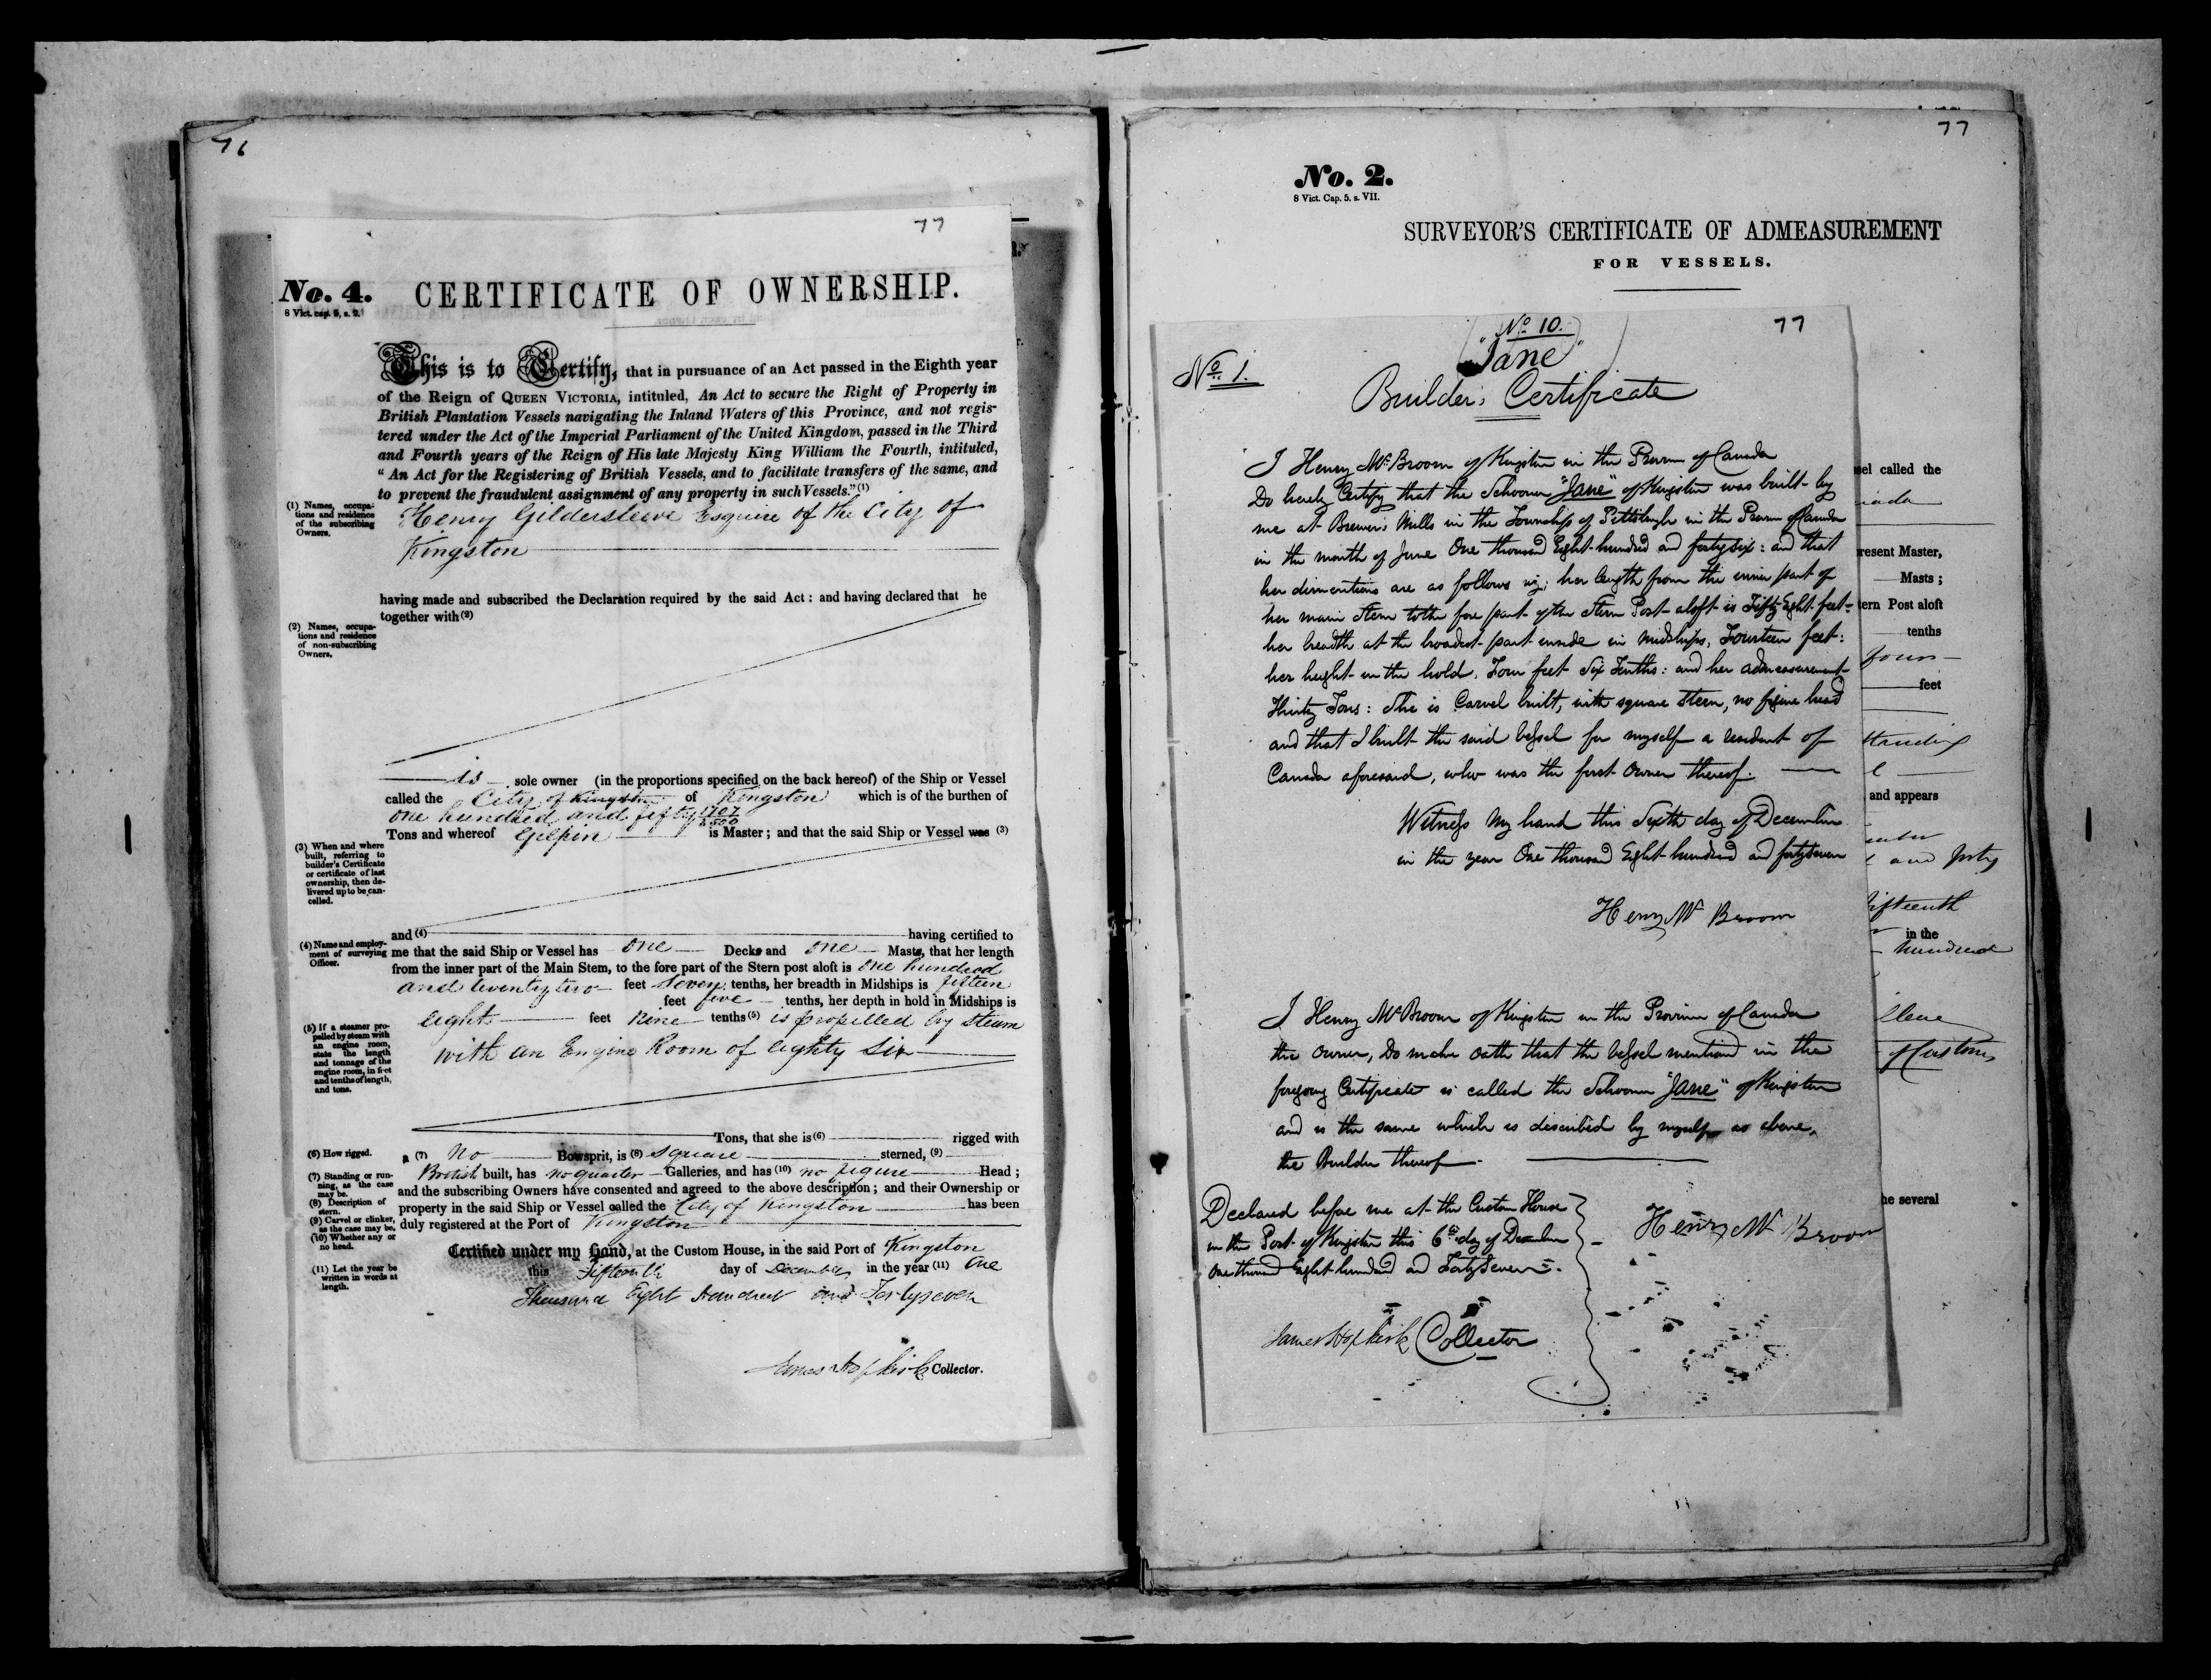 76
77
No. 4.
8 Vict. cap. 5, s. 2.
CERTIFICATE OF OWNERSHIP.
This is to Certify, that in pursuance of an Act passed in the Eighth year
of the Reign of QUEEN VICTORIA, intituled, An Act to secure the Right of Property in
British Plantation Vessels navigating the Inland Waters of this Province, and not regis-
tered under the Act of the Imperial Parliament of the United Kingdom, passed in the Third
and Fourth years of the Reign of His late Majesty King William the Fourth, intituled,
“An Act for the Registering of British Vessels, and to facilitate transfers of the same, and
to prevent the fraudulent assignment of any property in such Vessels.” (1)
(1) Names, occupa-
tions and residence
of the subscribing
Owners.
Henry Gildersleeve Esquire of the City of
Kingston
having made and subscribed the Declaration required by the said Act: and having declared that he
together with (2)
(2) Names, occupa-
tions and residence
of non-subscribing
Owners.
is sole owner (in the proportions specified on the back hereof) of the Ship or Vessel
called the City of Kingston of Kingston which is of the burthen of
one hundred and fifty 1707/3500
Tons and whereof Gilpin is Master; and that the said Ship or Vessel was (3)
(3) When and where
built, referring to
builder's Certificate
or certificate of last
ownership, then de-
livered up to be can-
celled.
and (4) having certified to
(4) Name and employ-
ment of surveying
Officer.
me that the said Ship or Vessel has one Decks and one Masts, that her length
from the inner part of the Main Stem, to the fore part of the Stern post aloft is one hundred
and twenty two feet seven tenths, her breadth in Midships is fifteen
feet five tenths, her depth in hold in Midships is
eight feet nine tenths (5) is propelled by steam
with an Engine Room of eighty six
(5) If a steamer pro-
pelled by steam with
an engine room,
state the length
and tonnage of the
engine room, in feet
and tenths of length,
and tons.
Tons, that she is (6) rigged with
(6) How rigged.
a (7) No Bowsprit, is (8) square sterned, (9)
British built, has no quarter Galleries, and has (10) no figure Head;
and the subscribing Owners have consented and agreed to the above description; and their Ownership or
property in the said Ship or Vessel called the City of Kingston has been
duly registered at the Port of Kingston
(7) Standing or run-
ning, as the case
may be.
(8) Description of
stern.
(9) Carvel or clinker,
as the case may be.
(10) Whether any or
no head.
Certified under my Hand, at the Custom House, in the said Port of Kingston
this Fifteenth day of December in the year (11) One
Thousand Eight Hundred and Forty seven
(11) Let the year be
written in words at
length.
James Hopkirk Collector.
77
No. 2.
8 Vict. Cap. 5. s. VII.
SURVEYOR'S CERTIFICATE OF ADMEASUREMENT
FOR VESSELS.
No 10.
77
"Jane"
No 1.
Builder's Certificate
I Henry McBroom of Kingston in the Province of Canada
Do hereby Certify that the Schooner "Jane" of Kingston was built by
me at Brewer's Mills in the Township of Pittsburgh in the Province of Canada
in the month of June One thousand Eight hundred and forty six: and that
her dimentions are as follows viz: her length from the inner part of
her main Stem to the fore part of the Stern Post aloft is Fifty Eight feet:
her breadth at the broadest part inside in Midships, Fourteen feet:
her height in the hold, Four feet Six Tenths: and her admeasurement
Thirty Tons: She is Carvel built, with square stern, no figure head
and that I built the said Vessel for myself a resident of
Canada aforesaid, who was the first Owner thereof.
Witness My hand this Sixth day of December
in the year One thousand Eight hundred and forty seven
Henry Mc Broom
I Henry McBroom of Kingston in the Province of Canada
the owner, Do make oath that the Vessel mentioned in the
foregoing Certificate is called the Schooner "Jane" of Kingston
and is the same which is discribed by myself as above,
the Builder thereof.
Declared before me at the Custom House
in the Port of Kingston this 6th day of December
One thousand Eight hundred and Forty Seven.
Henry Mc Broom
James Hopkirk Collector
called the
resent Master,
Masts;
tern Post aloft
tenths
four
feet
standing
and appears
and forty
fifteenth
in the
hundred
of Customs
he several